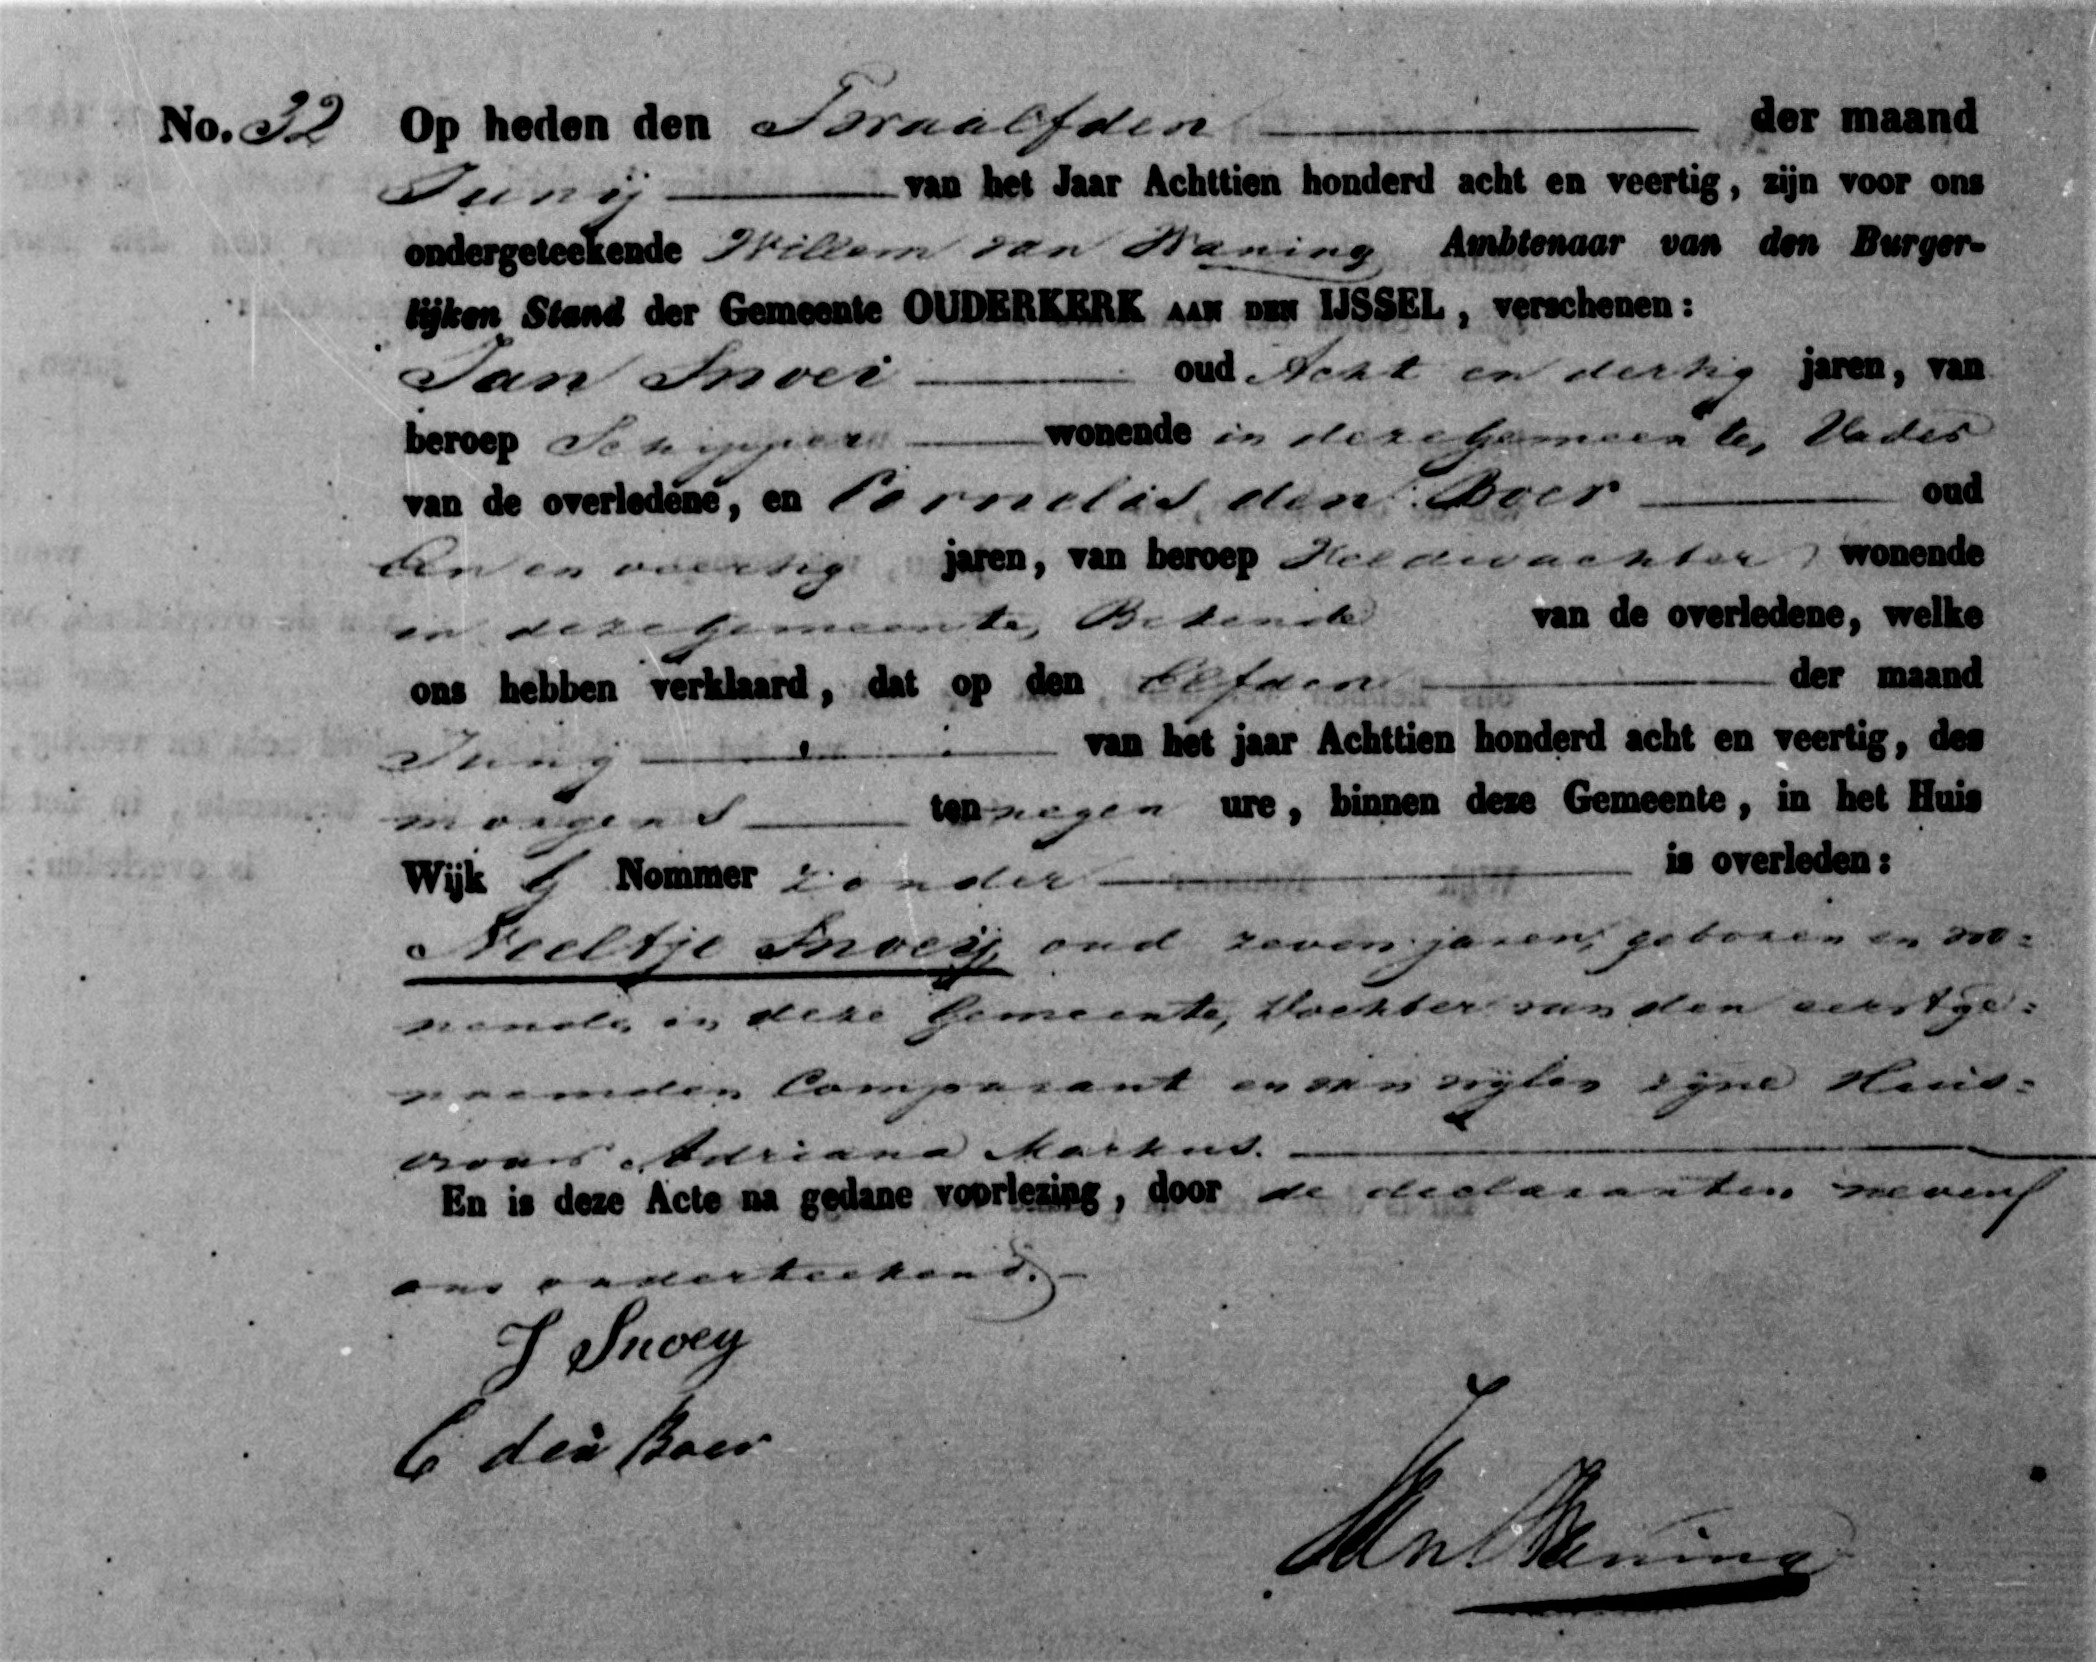 No. 32 Op heden den Twaalfden der maand
Junij van het Jaar Achttien honderd acht en veertig, zijn voor ons
ondergeteekende Willem van Waning Ambtenaar van den Burger-
lijken Stand der Gemeente OUDERKERK AAN DEN IJSSEL, verschenen:
Jan Snoei oud Acht en dertig jaren, van
beroep Schipper wonende in deze Gemeente, Vader
van de overledene, en Cornelis den Boer oud
Een en veertig jaren, van beroep Veldwachter wonende
in deze Gemeente, Bekende van de overledene, welke
ons hebben verklaard, dat op den Elfden der maand
Junij van het jaar Achttien honderd acht en veertig, des
morgens ten negen ure, binnen deze Gemeente, in het Huis
Wijk G Nommer zonder is overleden:
Neeltje Snoeij, oud zeven jaren, geboren en wo=
nende in deze Gemeente, Dochter van den eerstge=
noemden Comparant en van wijlen zijne Huis=
vrouw Adriana Markus.
En is deze Acte na gedane voorlezing, door de declaranten nevens
ons onderteekend.
J Snoey
C den Boer
Wn Waning